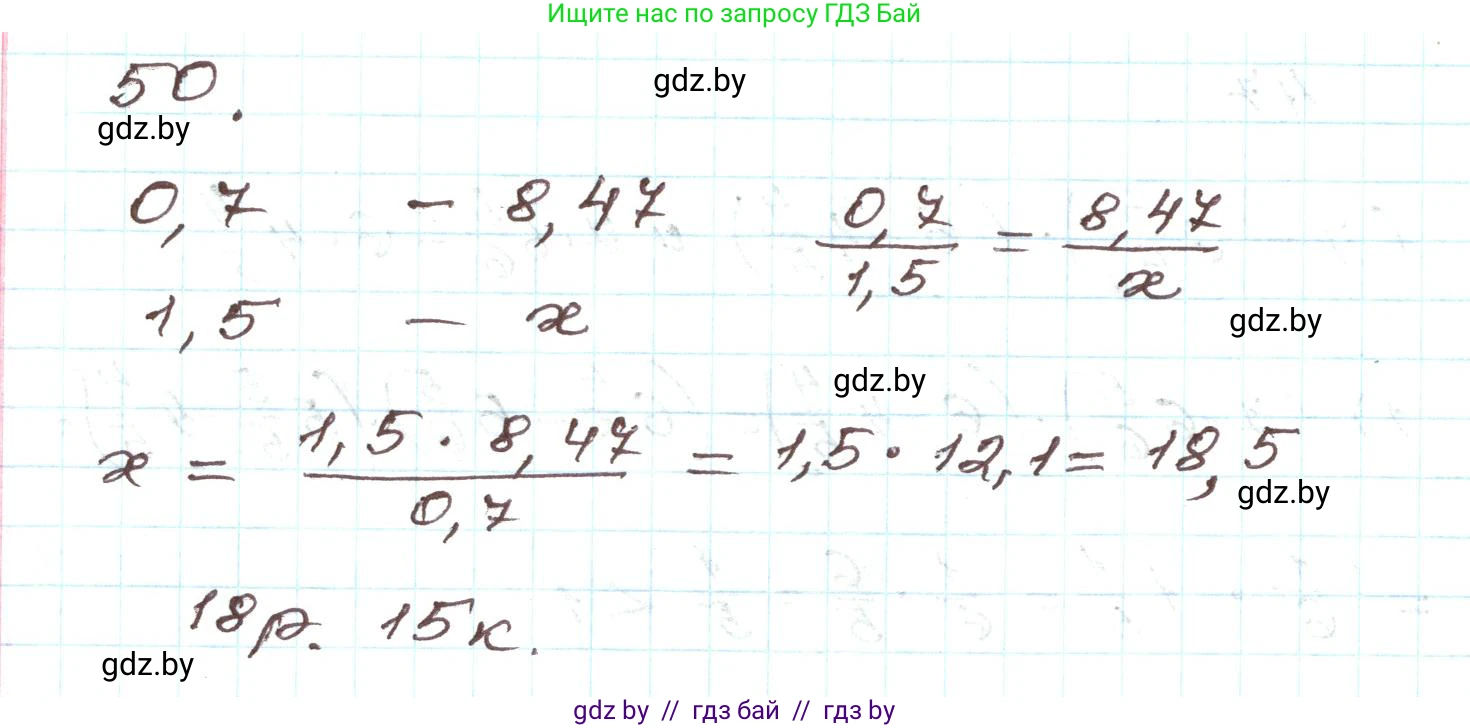 Ищите нас по запросу ГДЗ Бай
50.
gdz.by
gdz.by
0,7 - 8,47
0,7/1,5 = 8,47/x
1,5 - x
gdz.by
gdz.by
x = 1,5 · 8,47/0,7 = 1,5 · 12,1 = 18,5
gdz.by
18р. 15к.
gdz.by
gdz by // гдз бай // гдз by